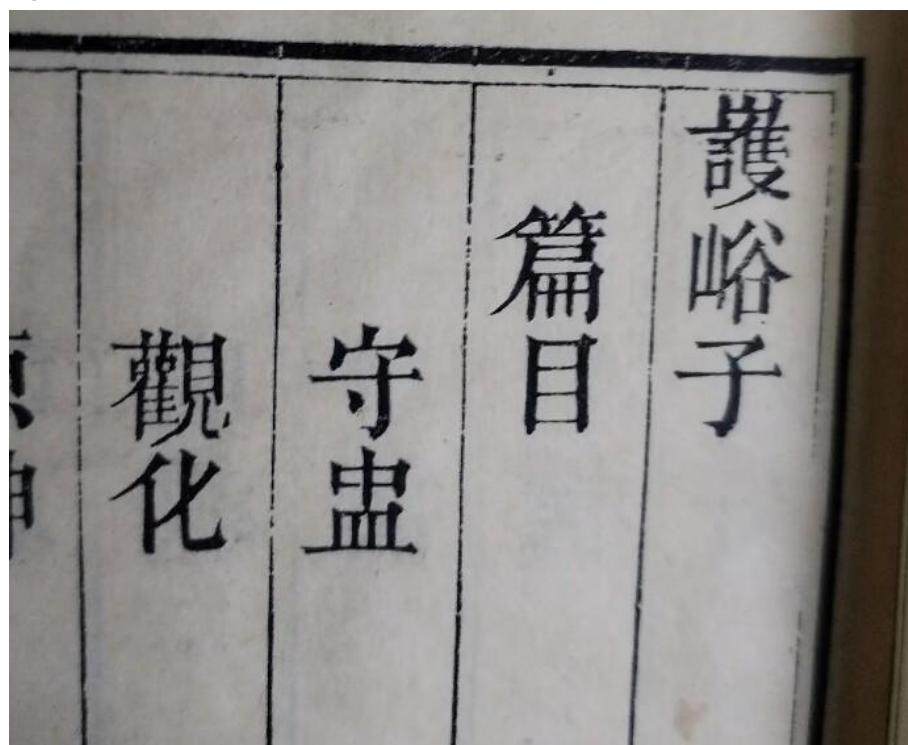 䕶峪子
篇目
守盅
觀化